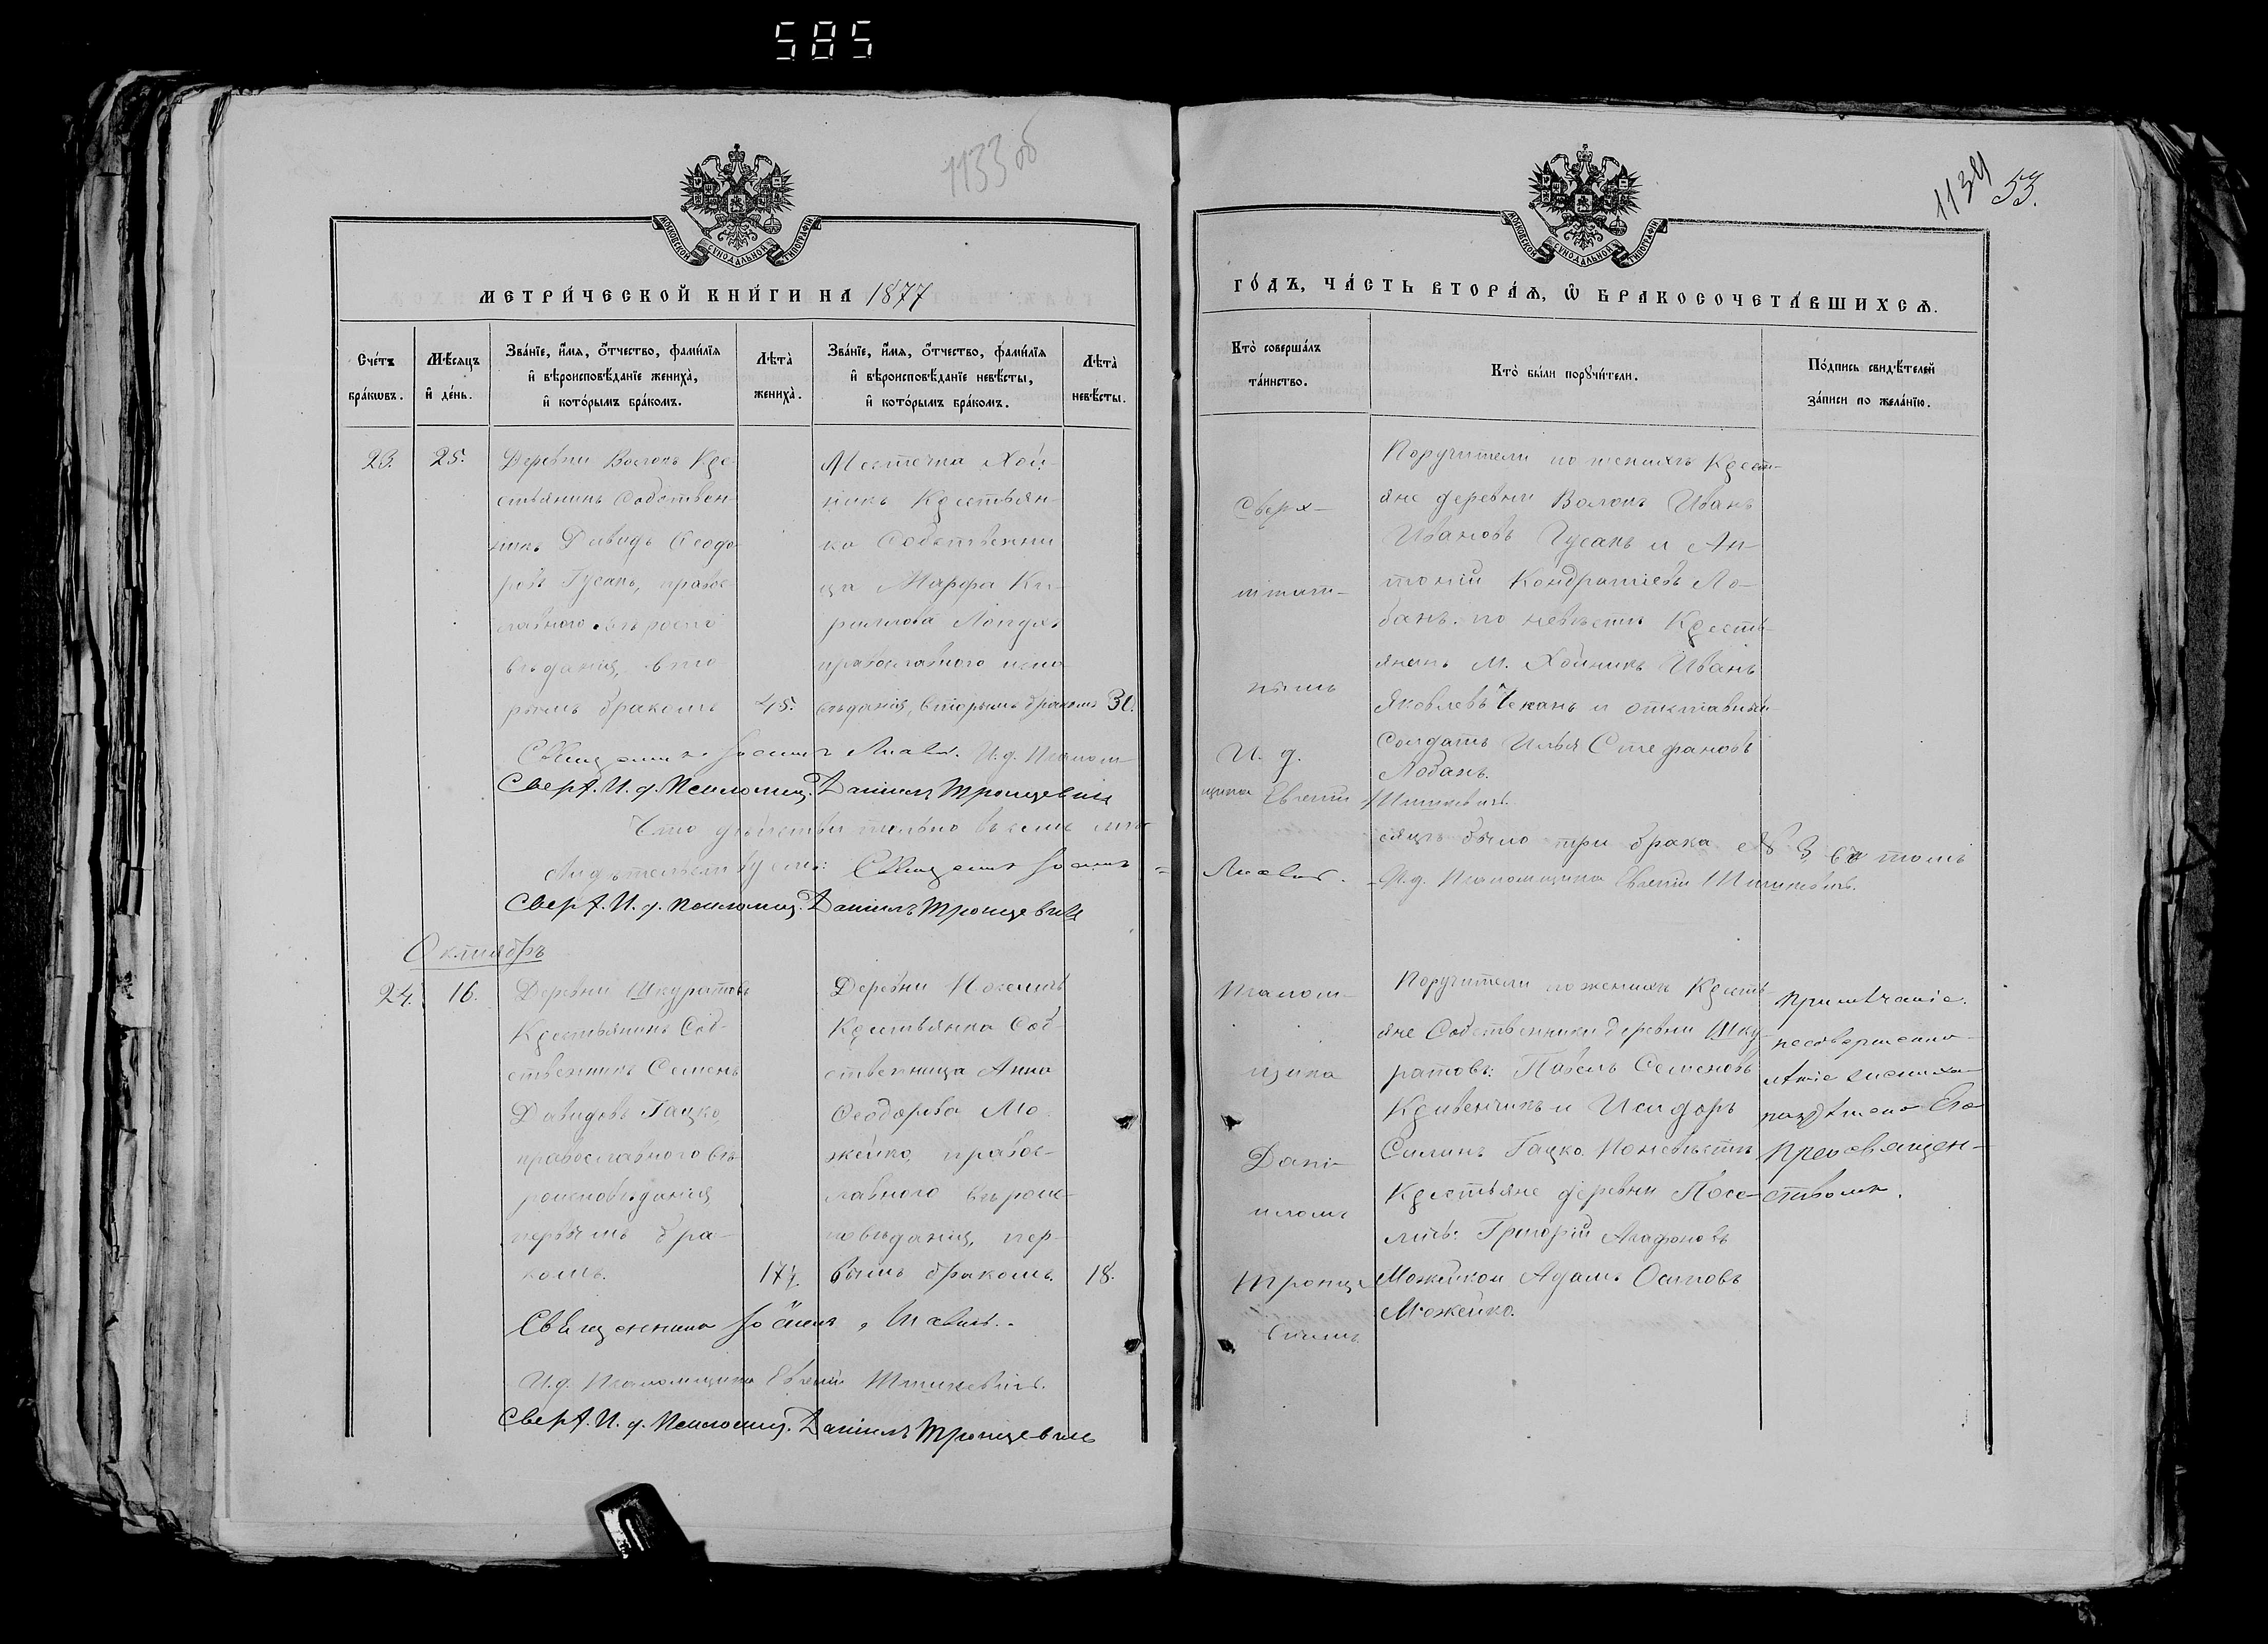 585
1133 об
МОСКОВСКОЙ СѴНОДАЛЬНОЙ ТИПОГРАФІИ
МЕТРИ́ЧЕСКОЙ КНИ́ГИ НА 1877
Сче́тъ бра́кѡвъ.
Мѣ́сяцъ и҆ де́нь.
Зва́нїе, и҆́мя, ѻ҆́тчество, фами́лїя и҆ вѣроисповѣ́данїе жениха̀, и҆ кото́рымъ бра́комъ.
Лѣта̀ жениха̀.
Зва́нїе, и҆́мя, ѻ҆́тчество, фами́лїя и҆ вѣроисповѣ́данїе невѣ́сты, и҆ кото́рымъ бра́комъ.
Лѣта̀ невѣ́сты.
23. 25.
Деревни Волокъ Кре-
стьянинъ Собствен-
никъ Давидъ Ѳеодо-
ровъ Гусакъ, правос-
лавного вѣроиспо
вѣданія, вто
рымъ бракомъ
45.
Мѣстечка Хой-
никъ Крестьян-
ка Собственни
ца Марфа Ки-
риллова
православного испо
вѣданія, вторымъ бракомъ
30.
Священникъ Іоаннъ И. д. Псалом-
Сверх. И. д. Псаломщ. Даніилъ Тронцевичъ
Что дѣйствительно въ семъ мѣ-
свидѣтельствуемъ: Священникъ Іоаннъ
Сверх. И. д. Псаломщ. Даніилъ Тронцевичъ
Октябрь
24. 16.
Деревни Шкуратовъ
Крестьянинъ Соб-
ственникъ Семенъ
Давидовъ Гацко,
православного вѣ-
роисповѣданія,
первымъ бра-
комъ.
17½.
Деревни Поселичъ
Крестьянка Соб-
ственница Анна
Ѳеодорова Мо-
жейко, правос-
лавного вѣроис-
повѣданія, пер-
вымъ бракомъ.
18.
Священникъ Іоаннъ
И. д. Псаломщика Евгеній
Сверх. И. д. Псаломщ. Даніилъ Тронцевичъ
1134 53.
МОСКОВСКОЙ СѴНОДАЛЬНОЙ ТИПОГРАФІИ
ГО́ДЪ, ЧА́СТЬ ВТОРА́Ѧ, Ѽ БРАКОСОЧЕТА́ВШИХСѦ.
Кто̀ соверша́лъ та́инство.
Кто̀ бы́ли порꙋчи́тели.
По́дпись свидѣ́телей за́писи по жела́нїю.
Сверх-
штат-
нымъ
И. д.
Поручители по женихѣ Крестья-
яне деревни Волокъ Иванъ
Ивановъ Гусакъ и Ан-
тоній Кондратіевъ Ло-
банъ. по невѣстѣ Крестья-
янинъ М. Хойникъ Иванъ
Яковлевъ Чеканъ и отставный
Солдатъ Илья Стефановъ
Лобанъ.
щика Евгеній
сяцѣ было три брака № 3 въ томъ
И. д. Псаломщика Евгеній
Псалом-
щика
Дані-
иломъ
Тронце-
вичемъ
Поручители по женихѣ Кресть-
яне Собственники деревни Шку-
ратовъ: Павелъ Семеновъ
Кривенчикъ и Исидоръ
Силинъ Гацко. По невѣстѣ
Крестьяне деревни Посе-
личъ: Григорій Агафоновъ
Можейко и Адамъ Осиповъ
Можейко.
Примѣчаніе.
несовершенно-
лѣтіе жениха
разрѣшено Его
Преосвящен-
ствомъ.